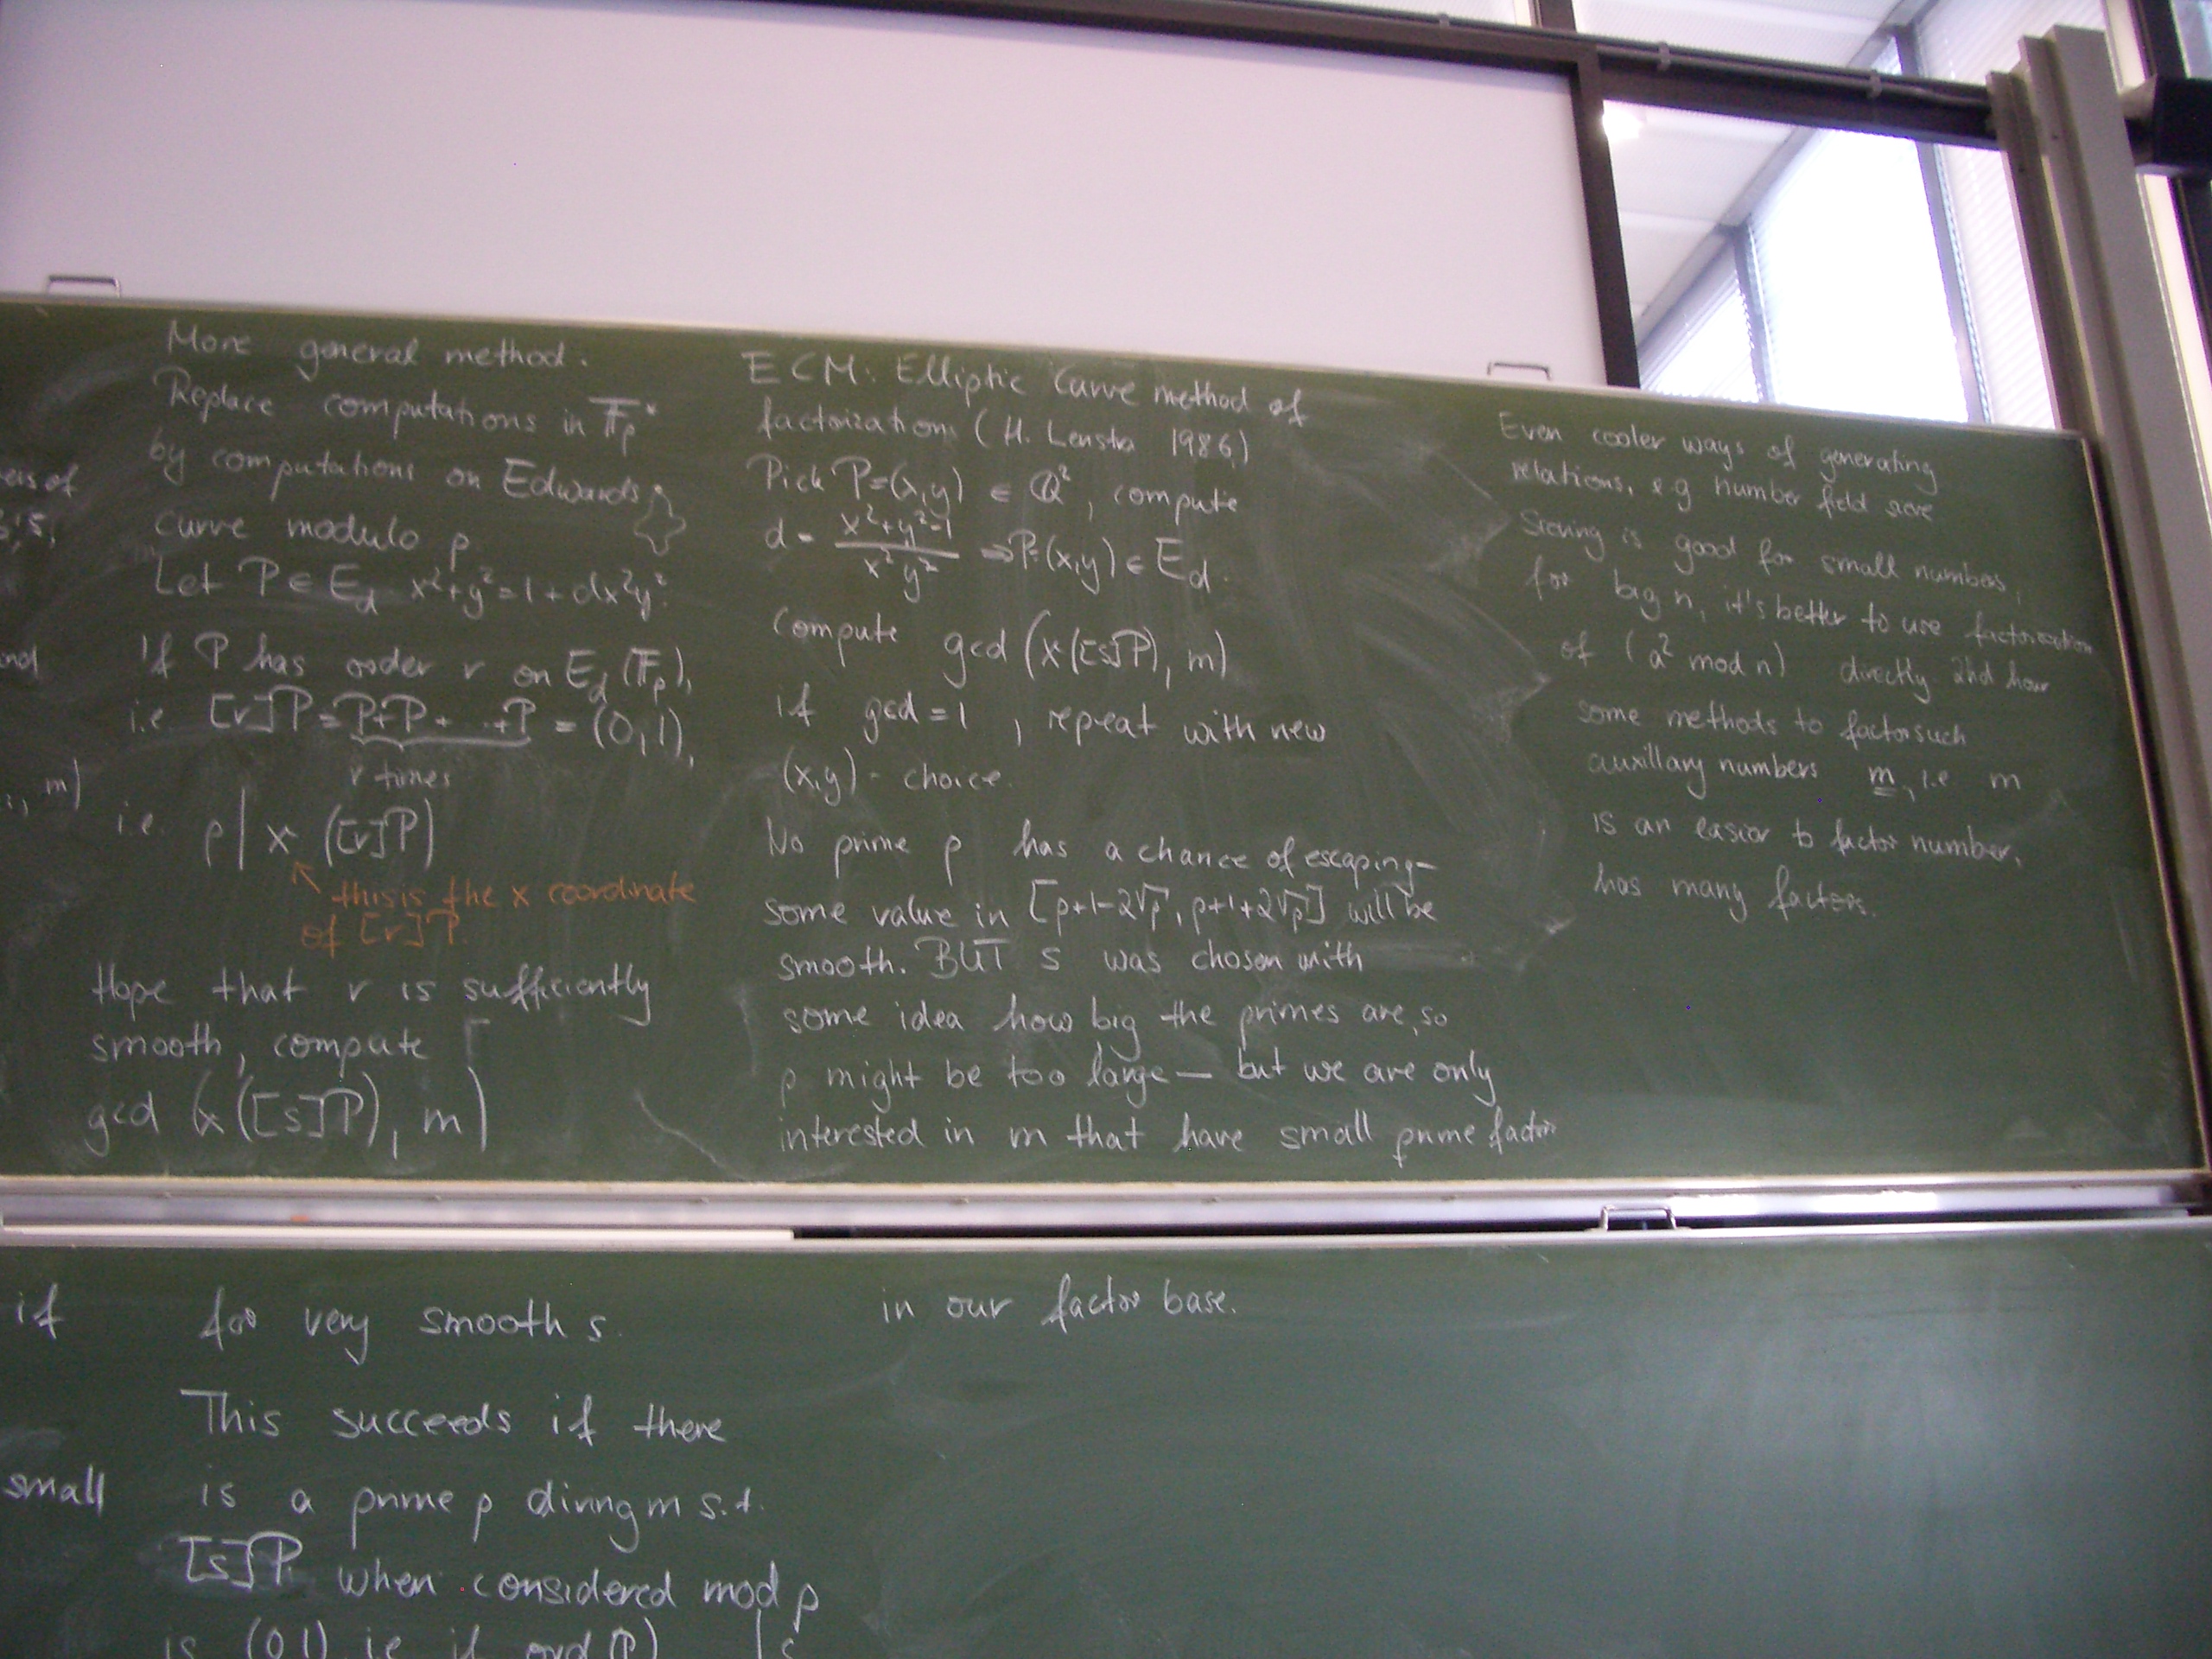 More general method.
Replace computations in F̅p*
by computations on Edwards
curve modulo p.
Let P ∈ E_d x²+y²=1+dx²y².
If P has order r on E_d(F_p),
i.e. [r]P=P+P+...+P = (0,1),
r times
i.e. p | x ([r]P)
this is the x coordinate
of [r]P.
Hope that r is sufficiently
smooth, compute
gcd (x([s]P), m)
for very smooth s.
This succeeds if there
is a prime p diving m s.t.
[s]P when considered mod p
is (0,1) i.e. if ord(P) | s
ECM: Elliptic Curve method of
factorization (H. Lenstra 1986)
Pick P=(x,y) ∈ Q², compute
d = (x²+y²-1)/(x²y²) ⇒ P=(x,y) ∈ E_d.
Compute gcd (x([s]P), m)
if gcd = 1, repeat with new
(x,y) - choice.
No prime p has a chance of escaping–
some value in [p+1-2√p, p+1+2√p] will be
smooth. BUT s was chosen with
some idea how big the primes are, so
p might be too large — but we are only
interested in m that have small prime factor
in our factor base.
Even cooler ways of generating
relations, e.g number field sieve
Sieving is good for small numbers,
for big n, it's better to use factorization
of (a² mod n) directly and how
some methods to factor such
auxillary numbers m, i.e m
is an easier to factor number,
has many factors.
m)
if
small